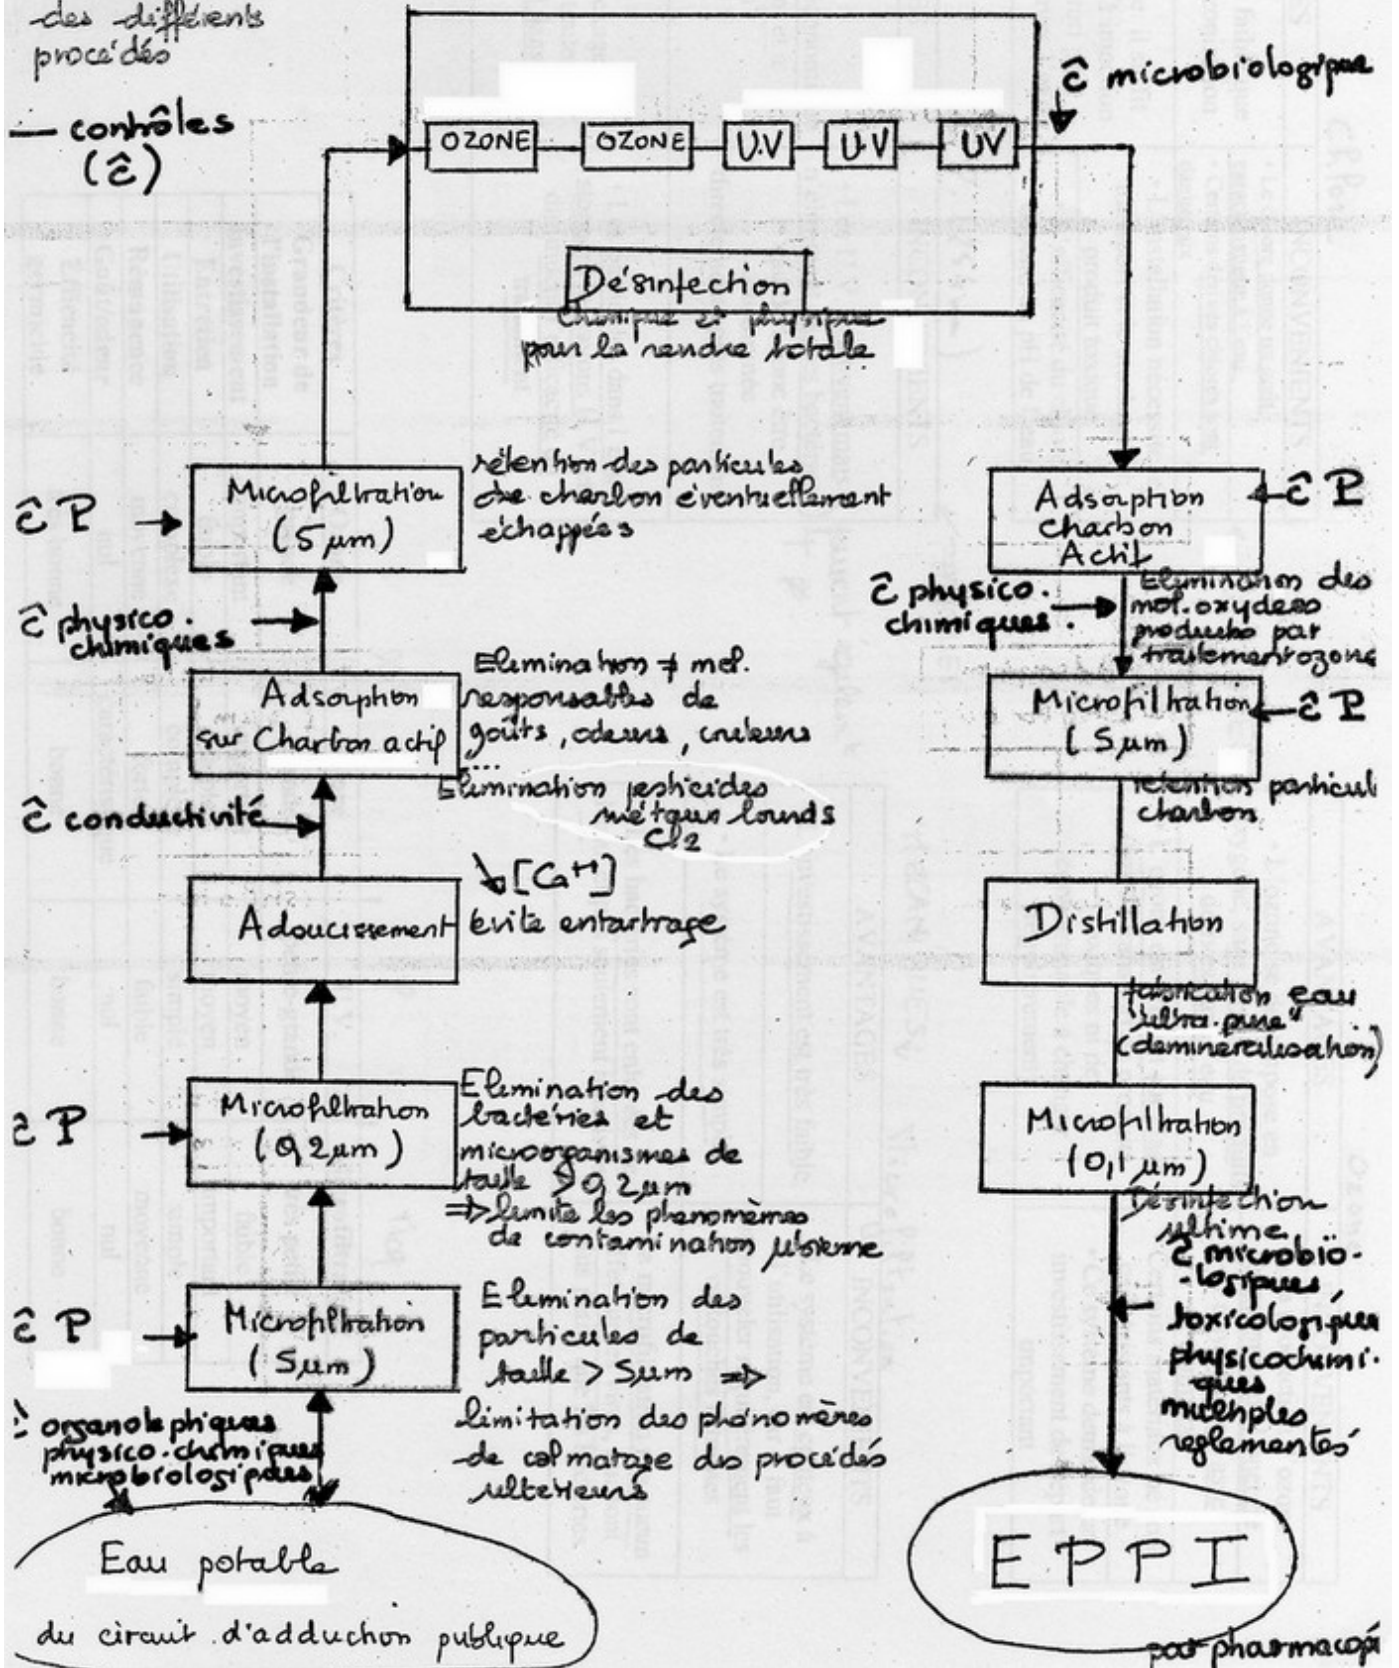 des différents
procédés
— contrôles
(ĉ)
ĉ microbiologique
OZONE
OZONE
U.V
U.V
UV
Désinfection
Chimique et physique
pour la rendre totale
ĉ P
Microfiltration
(5 µm)
rétention des particules
de charbon éventuellement
échappées
ĉ physico.
chimiques
Adsorption
sur Charbon actif
Elimination ≠ mol.
responsables de
goûts, odeurs, couleurs
....
Elimination pesticides
métaux lourds
Cl2
ĉ conductivité
Adoucissement
↘ [Ca++]
évite entartrage
ĉ P
Microfiltration
(0,2 µm)
Elimination des
bactéries et
microorganismes de
taille > 0,2 µm
⇒ limite les phénomènes
de contamination
ĉ P
Microfiltration
(5 µm)
Elimination des
particules de
taille > 5 µm ⇒
limitation des phénomènes
de colmatage des procédés
ultérieurs
ĉ organoleptiques
physico.chimiques
microbiologiques
Eau potable
du circuit d'adduction publique
Adsorption
Charbon
Actif
ĉ P
ĉ physico.
chimiques.
Elimination des
mol. oxydées
produites par
traitement ozone
Microfiltration
(5 µm)
ĉ P
rétention particul
charbon
Distillation
fabrication eau
"ultra.pure"
(déminéralisation)
Microfiltration
(0,1 µm)
Désinfection
ultime
ĉ microbio-
-logiques,
toxicologiques
physicochimi.
ques
multiples
reglementés
EPPI
par pharmacopé